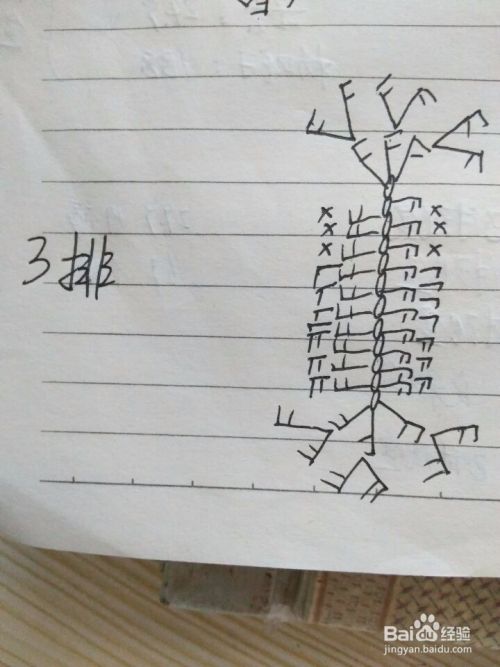 3排
Baidu 经验
jingyan.baidu.com